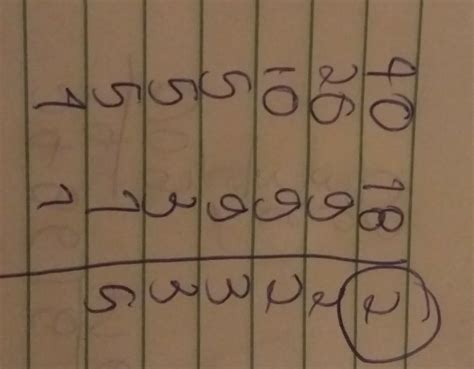 40 18 2
20 9 2
10 9 2
5 9 3
5 3 3
5 1 5
1 1